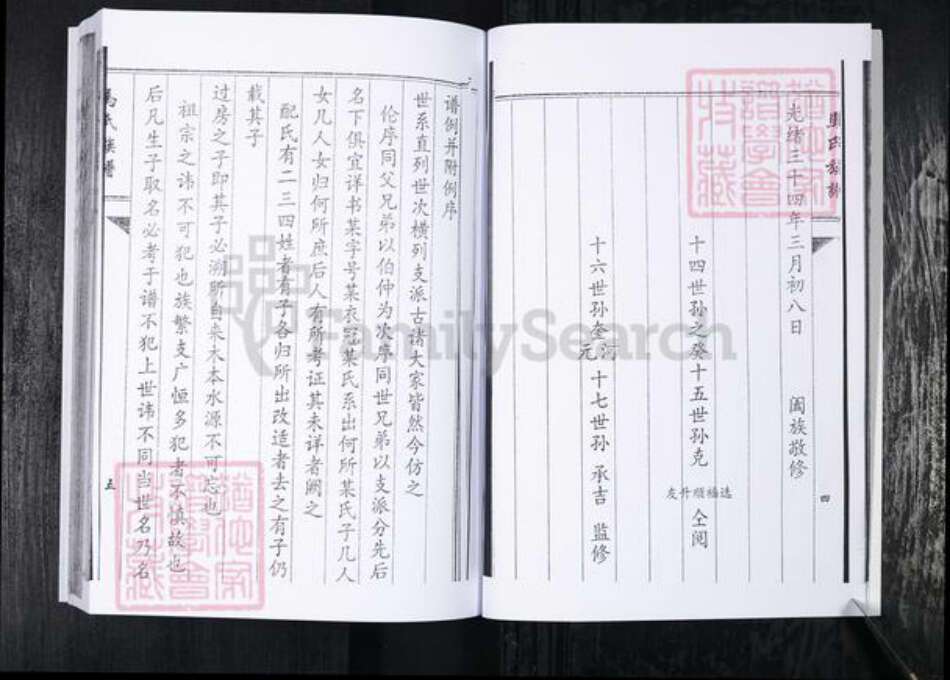 光绪三十四年三月初八日 阖族敬修
十四世孙之癸十五世孙克 友升顺福选 仝阅
十六世孙奎 元 河 十七世孙 承吉 监修
四
谱例并附例序
世系直列世次横列支派古诸大家皆然今仿之
伦序同父兄弟以伯仲为次序同世兄弟以支派分先后
名下俱宜详书某字号某衣冠某氏系出何所某氏子几人
女几人女归何所庶后人有所考证其未详者阙之
配氏有二三四姓者有子各归所出改适者去之有子仍
载其子
过房之子即其子必溯所自来木本水源不可忘也
祖宗之讳不可犯也族繁支广恒多犯者不慎故也
后凡生子取名必考于谱不犯上世讳不同当世名乃名
氏族谱
五
FamilySearch